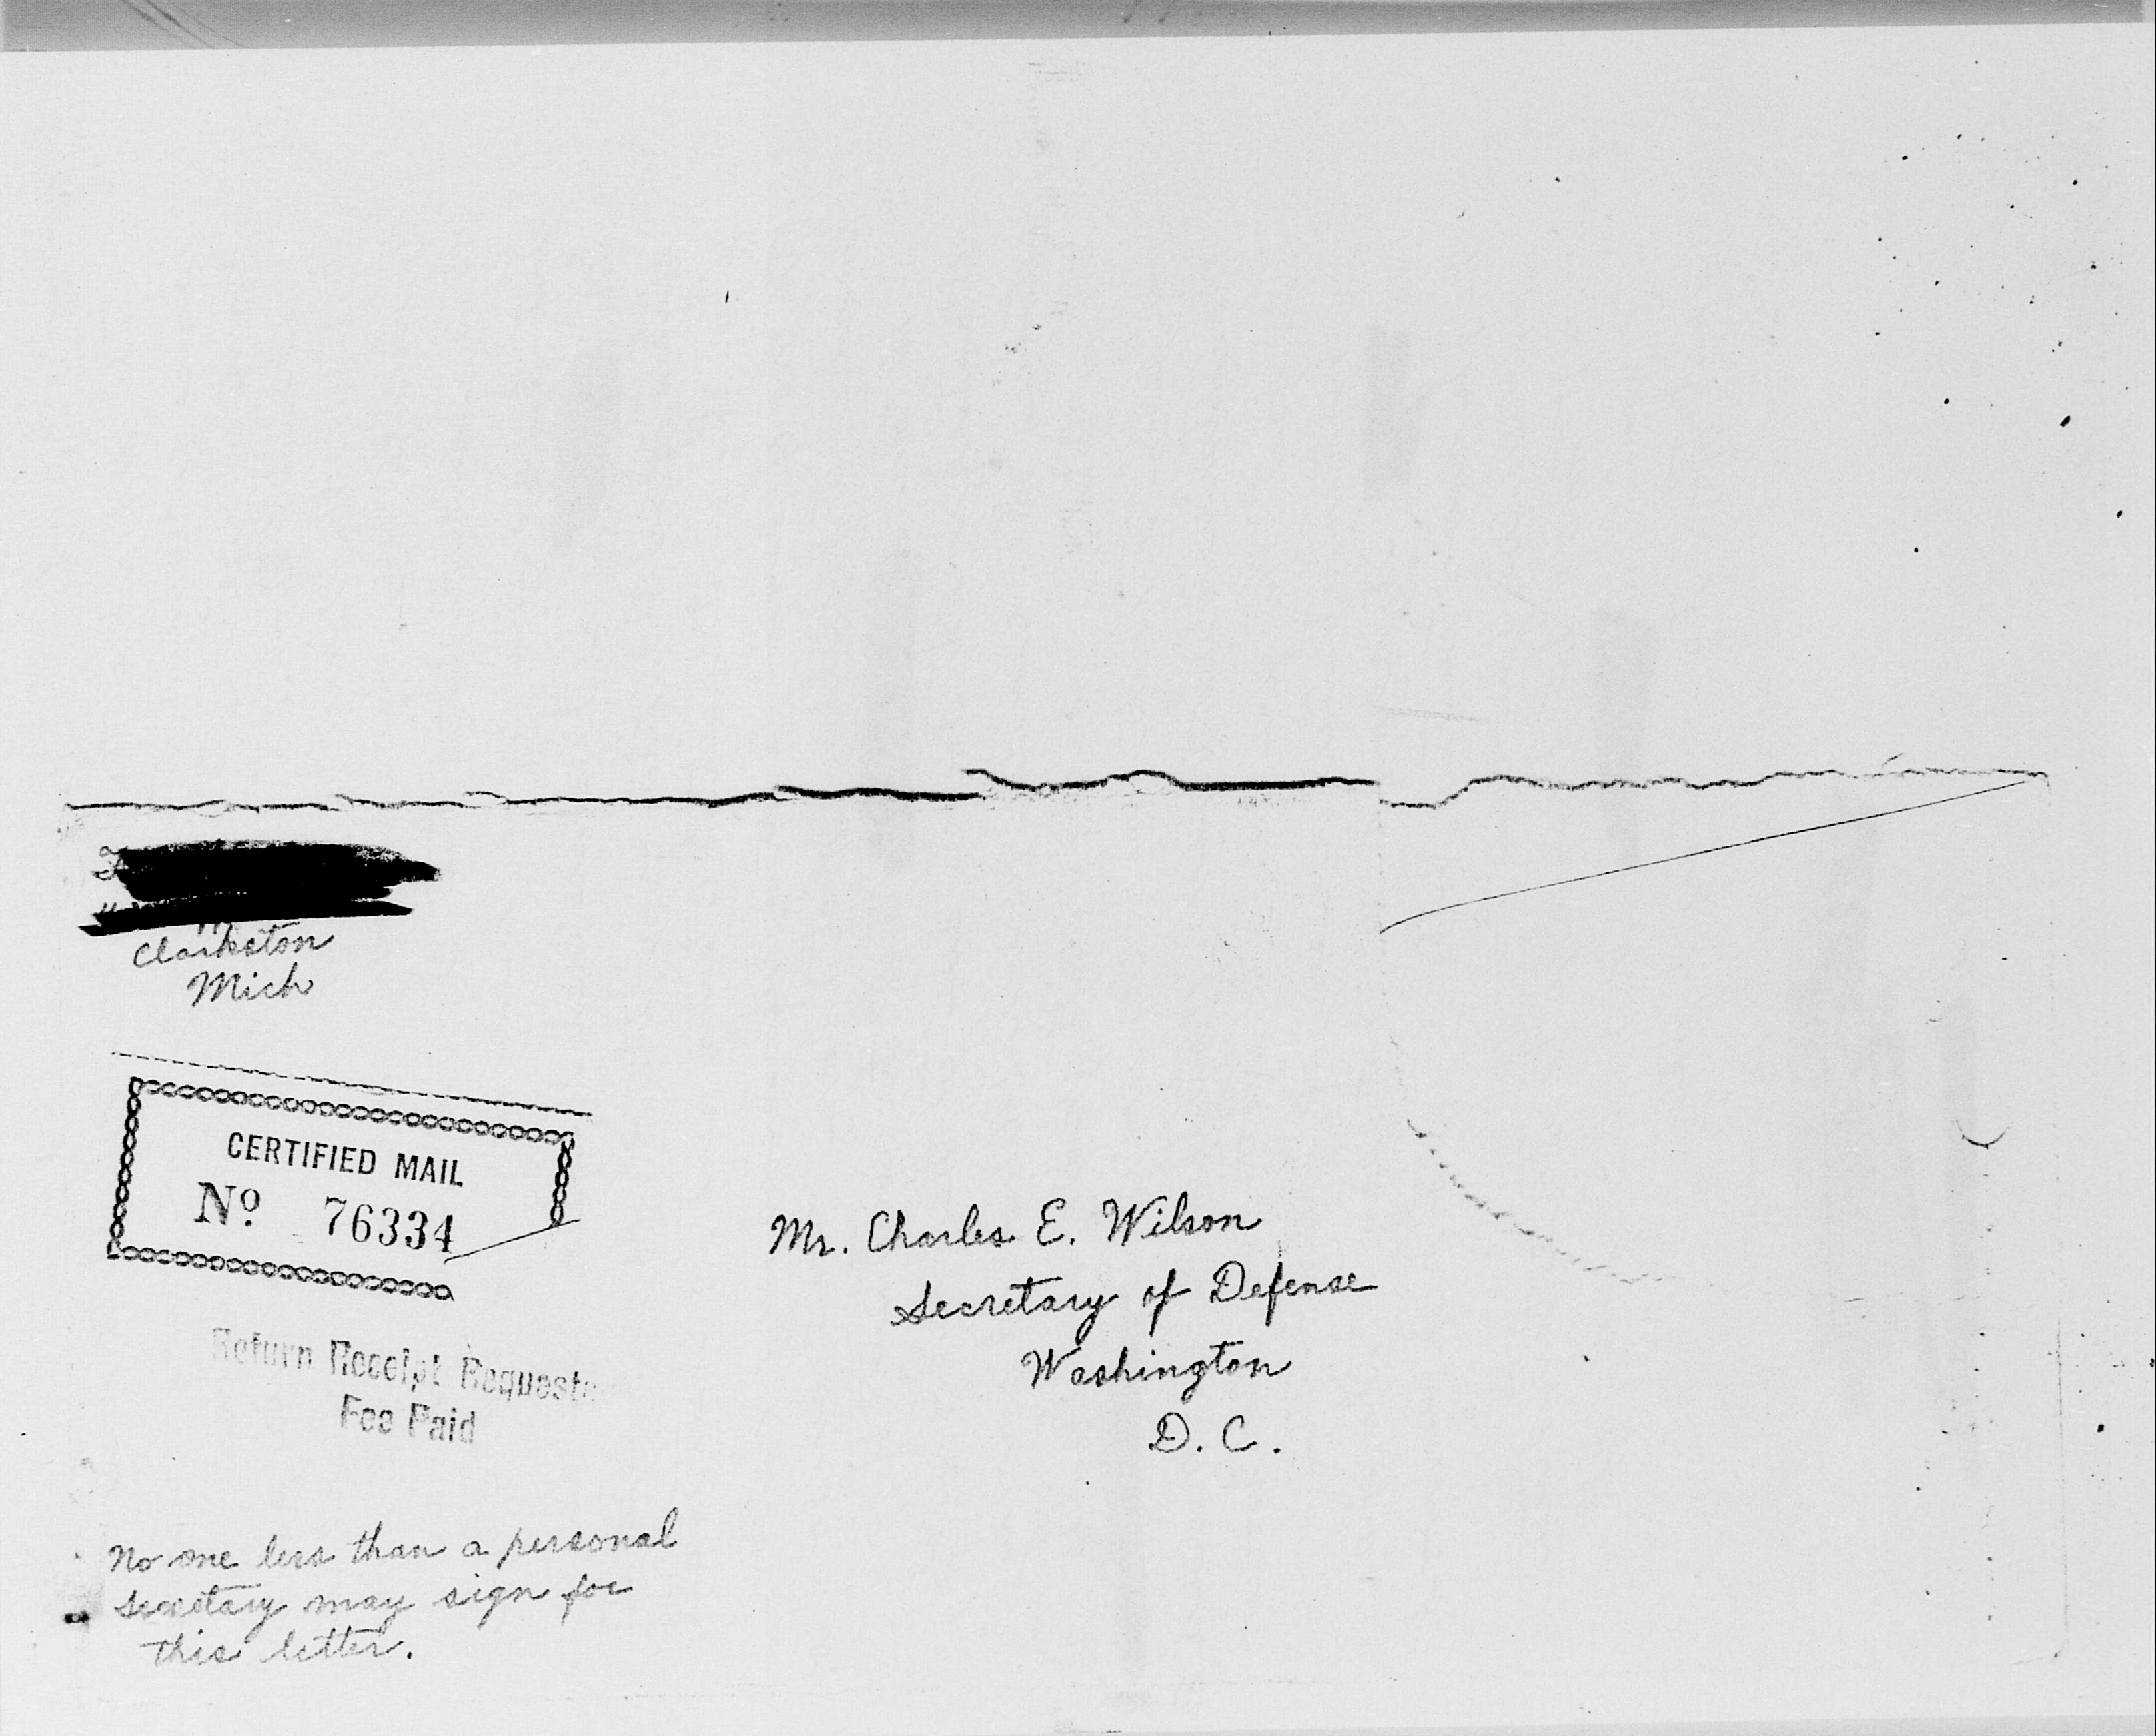 Clarkston
Mich
CERTIFIED MAIL
No. 76334
Return Receipt Requeste
Fee Paid
Mr. Charles E. Wilson
Secretary of Defense
Washington
D. C.
No one less than a personal
secretary may sign for
this letter.